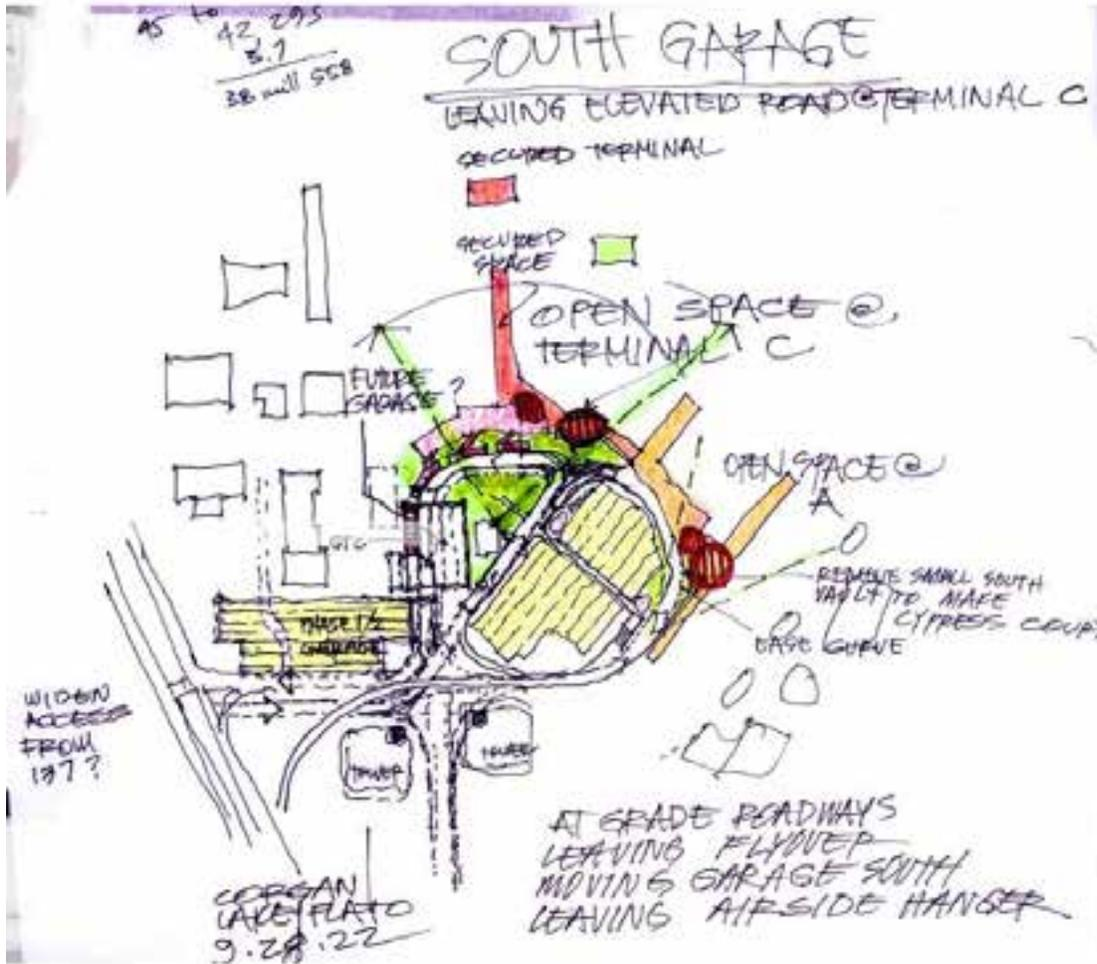 42,295
5.7
SOUTH GARAGE
LEAVING ELEVATED ROAD@TERMINAL C
SECURED TERMINAL
SECURED
SPACE
OPEN SPACE @
TERMINAL C
FUTURE
GARAGE?
OPEN SPACE @
A
GTC
REMOVE SMALL SOUTH
VAULT TO MAKE
CYPRESS COURT
EASE CURVE
PHASE 1/2
GARAGE
WIDEN
ACCESS
FROM
137?
TOWER
TOWER
AT GRADE ROADWAYS
LEAVING FLYOVER
MOVING GARAGE SOUTH
LEAVING AIRSIDE HANGER
CORGAN
LAKE/FLATO
9.28.22